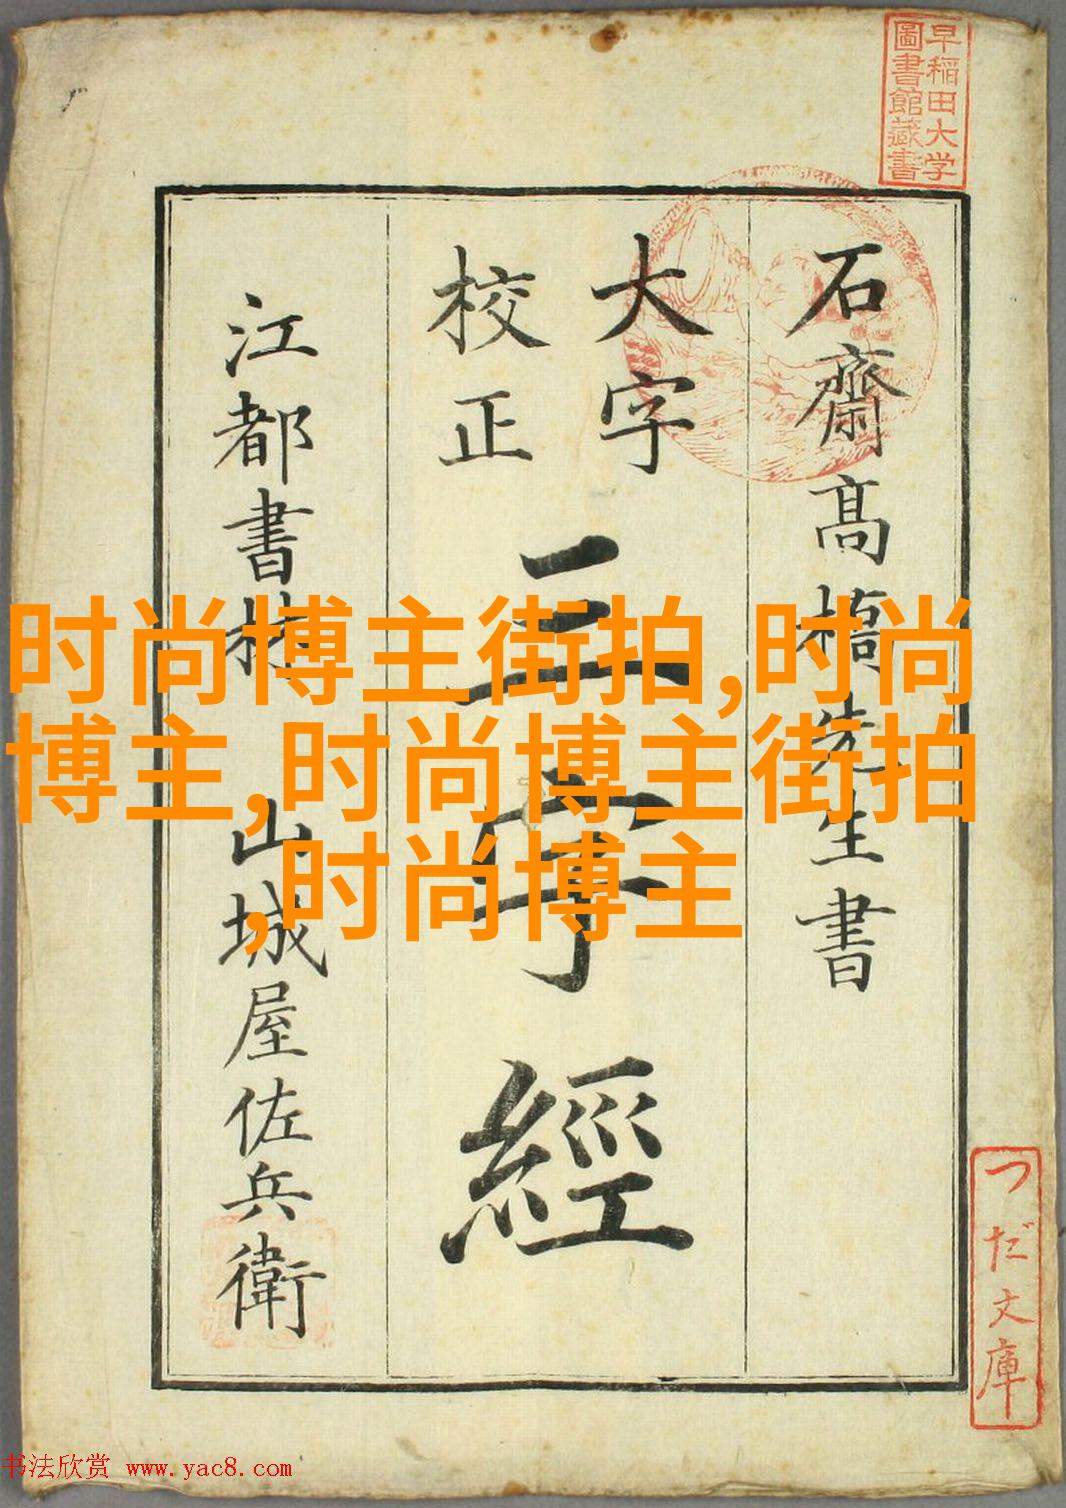 早稲田大学
圖書館藏書
石齋高橋先生書
大字
校正
三字經
江都書林 山城屋佐兵衛
つだ文庫
时尚博主街拍,时尚
博主,时尚博主街拍
,时尚博主
书法欣赏 www.yac8.com